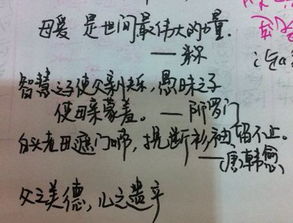 母爱是世间最伟大的力量.
——米尔
智慧之子使父亲快乐,愚昧之子
使母亲蒙羞。——所罗门
白头老母遮门啼,挽断衫袖留不止。
——唐·韩愈
父之美德,儿之遗产